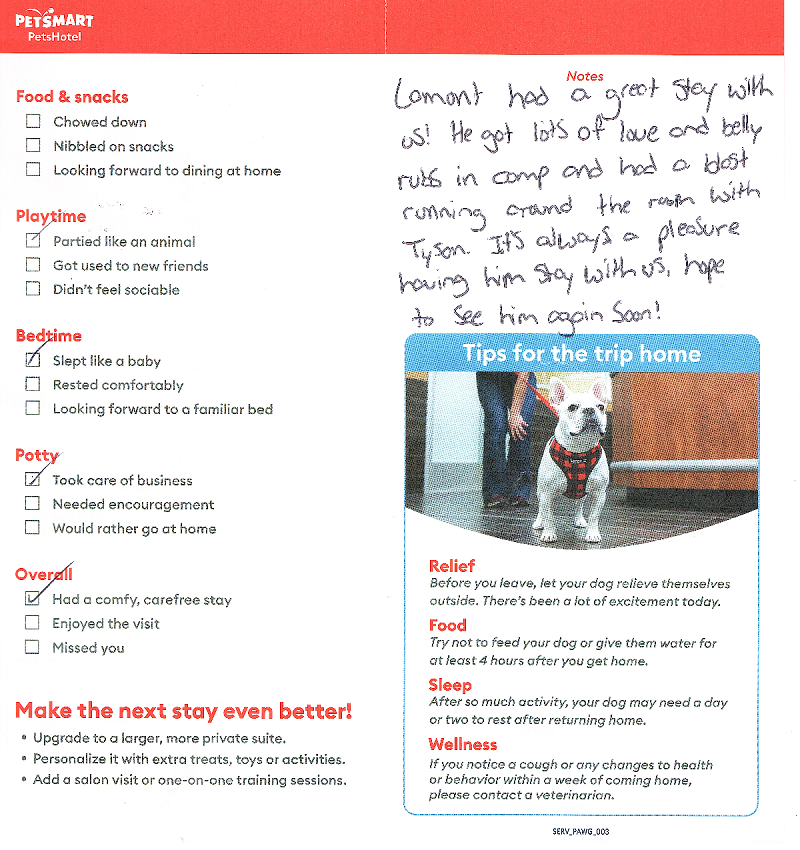 PETSMART
PetsHotel
Food & snacks
Chowed down
Nibbled on snacks
Looking forward to dining at home
Playtime
Partied like an animal
Got used to new friends
Didn't feel sociable
Bedtime
Slept like a baby
Rested comfortably
Looking forward to a familiar bed
Potty
Took care of business
Needed encouragement
Would rather go at home
Overall
Had a comfy, carefree stay
Enjoyed the visit
Missed you
Make the next stay even better!
• Upgrade to a larger, more private suite.
• Personalize it with extra treats, toys or activities.
• Add a salon visit or one-on-one training sessions.
Notes
Lamont had a great stay with
us! He got lots of love and belly
rubs in camp and had a blast
running around the room with
Tyson. It's always a pleasure
having him stay with us, hope
to see him again soon!
Tips for the trip home
Relief
Before you leave, let your dog relieve themselves
outside. There's been a lot of excitement today.
Food
Try not to feed your dog or give them water for
at least 4 hours after you get home.
Sleep
After so much activity, your dog may need a day
or two to rest after returning home.
Wellness
If you notice a cough or any changes to health
or behavior within a week of coming home,
please contact a veterinarian.
SERV_PAWG_003